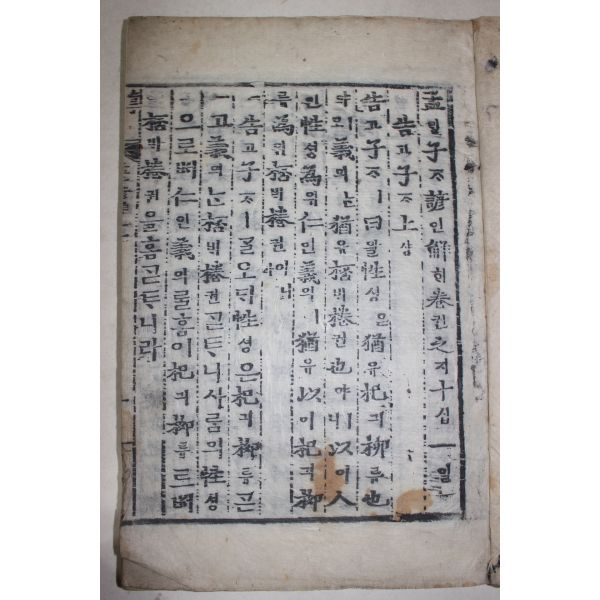 孟ᄆᆡᆼ子ᄌᆞ諺언解ᄒᆡ卷권之지十십一일
告고子ᄌᆞ上샹
告고子ᄌᆞㅣ曰왈性셩은猶유杞긔柳류也야
ㅣ오義의ᄂᆞᆫ猶유桮ᄇᆡ棬권也야ㅣ니以이人
인性셩為위仁인義의ㅣ猶유以이杞긔柳
류為위桮ᄇᆡ棬권이니라
告고子ᄌᆞㅣᄀᆞᆯ오ᄃᆡ性셩은杞긔柳류ᄀᆞᆮ
고義의ᄂᆞᆫ桮ᄇᆡ棬권ᄀᆞᆮᄐᆞ니사ᄅᆞᆷ의性셩
으로ᄡᅥ仁인義의ᄅᆞᆯᄒᆞᆷ이杞긔柳류로ᄡᅥ
桮ᄇᆡ棬권을ᄒᆞᆷᄀᆞᆮᄐᆞ니라